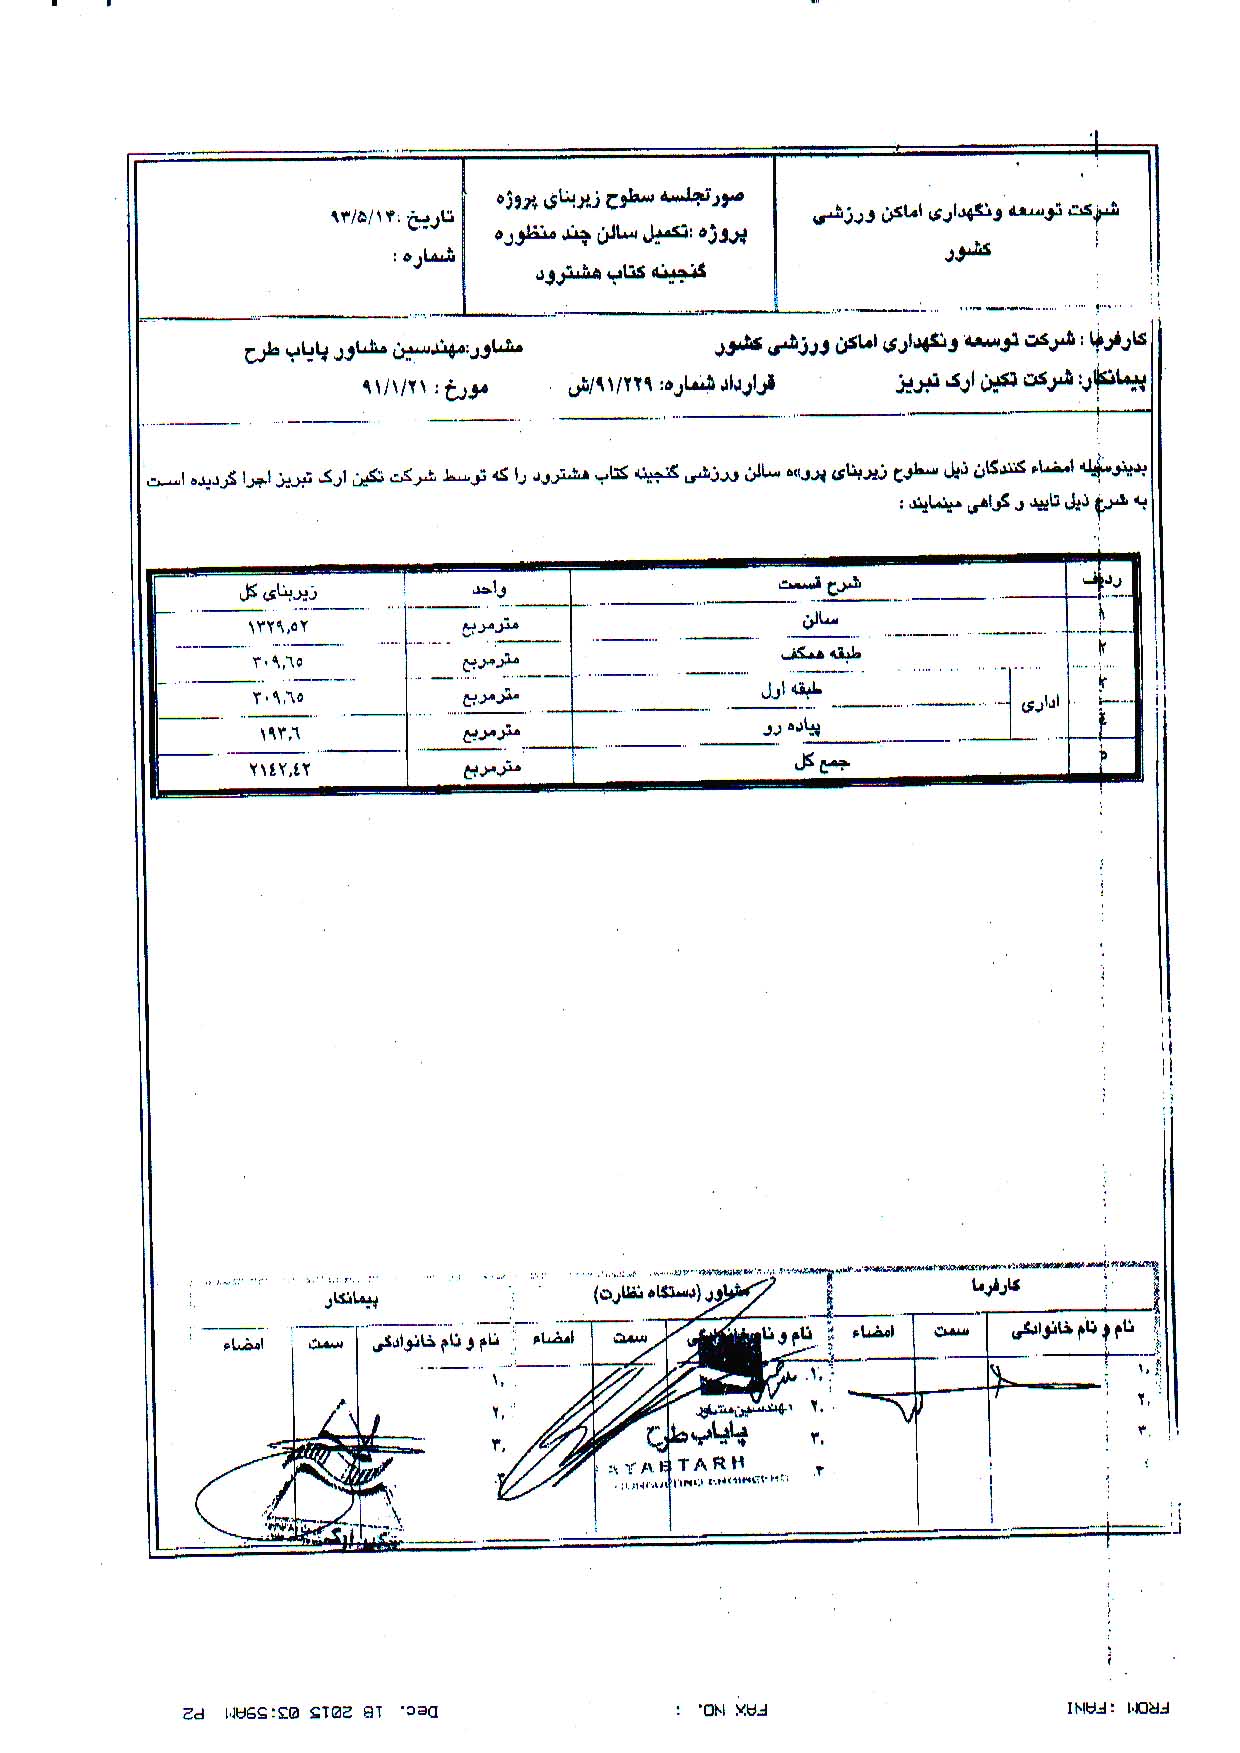 شرکت توسعه ونگهداری اماکن ورزشی
کشور
صورتجلسه سطوح زیربنای پروژه
پروژه :تکمیل سالن چند منظوره
گنجینه کتاب هشترود
تاریخ :۹۳/۵/۱۴
شماره :
کارفرما : شرکت توسعه ونگهداری اماکن ورزشی کشور
مشاور:مهندسین مشاور پایاب طرح
پیمانکار: شرکت تکین ارک تبریز
قرارداد شماره: ۹۱/۲۲۹/ش
مورخ : ۹۱/۱/۲۱
بدینوسیله امضاء کنندگان ذیل سطوح زیربنای پروژه سالن ورزشی گنجینه کتاب هشترود را که توسط شرکت تکین ارک تبریز اجرا گردیده است
به شرح ذیل تایید و گواهی مینمایند :
ردیف شرح قسمت واحد زیربنای کل
۱ سالن مترمربع ۱۳۲۹,۵۲
۲ طبقه همکف مترمربع ۳۰۹,٦۵
۳ اداری طبقه اول مترمربع ۳۰۹,٦۵
۴ پیاده رو مترمربع ۱۹۳,٦
۵ جمع کل مترمربع ۲۱۴۲,۴۲
کارفرما
مشاور (دستگاه نظارت)
پیمانکار
نام و نام خانوادگی سمت امضاء
نام و نام خانوادگی سمت امضاء
نام و نام خانوادگی سمت امضاء
۱.
۲.
۳.
۱.
۲.
۳.
۴.
۱.
۲.
۳.
مهندسین مشاور
پایاب طرح
AYABTARH
CONSULTING ENGINEERS
FROM :FANI
FAX NO. :
Dec. 18 2015 03:59AM P2